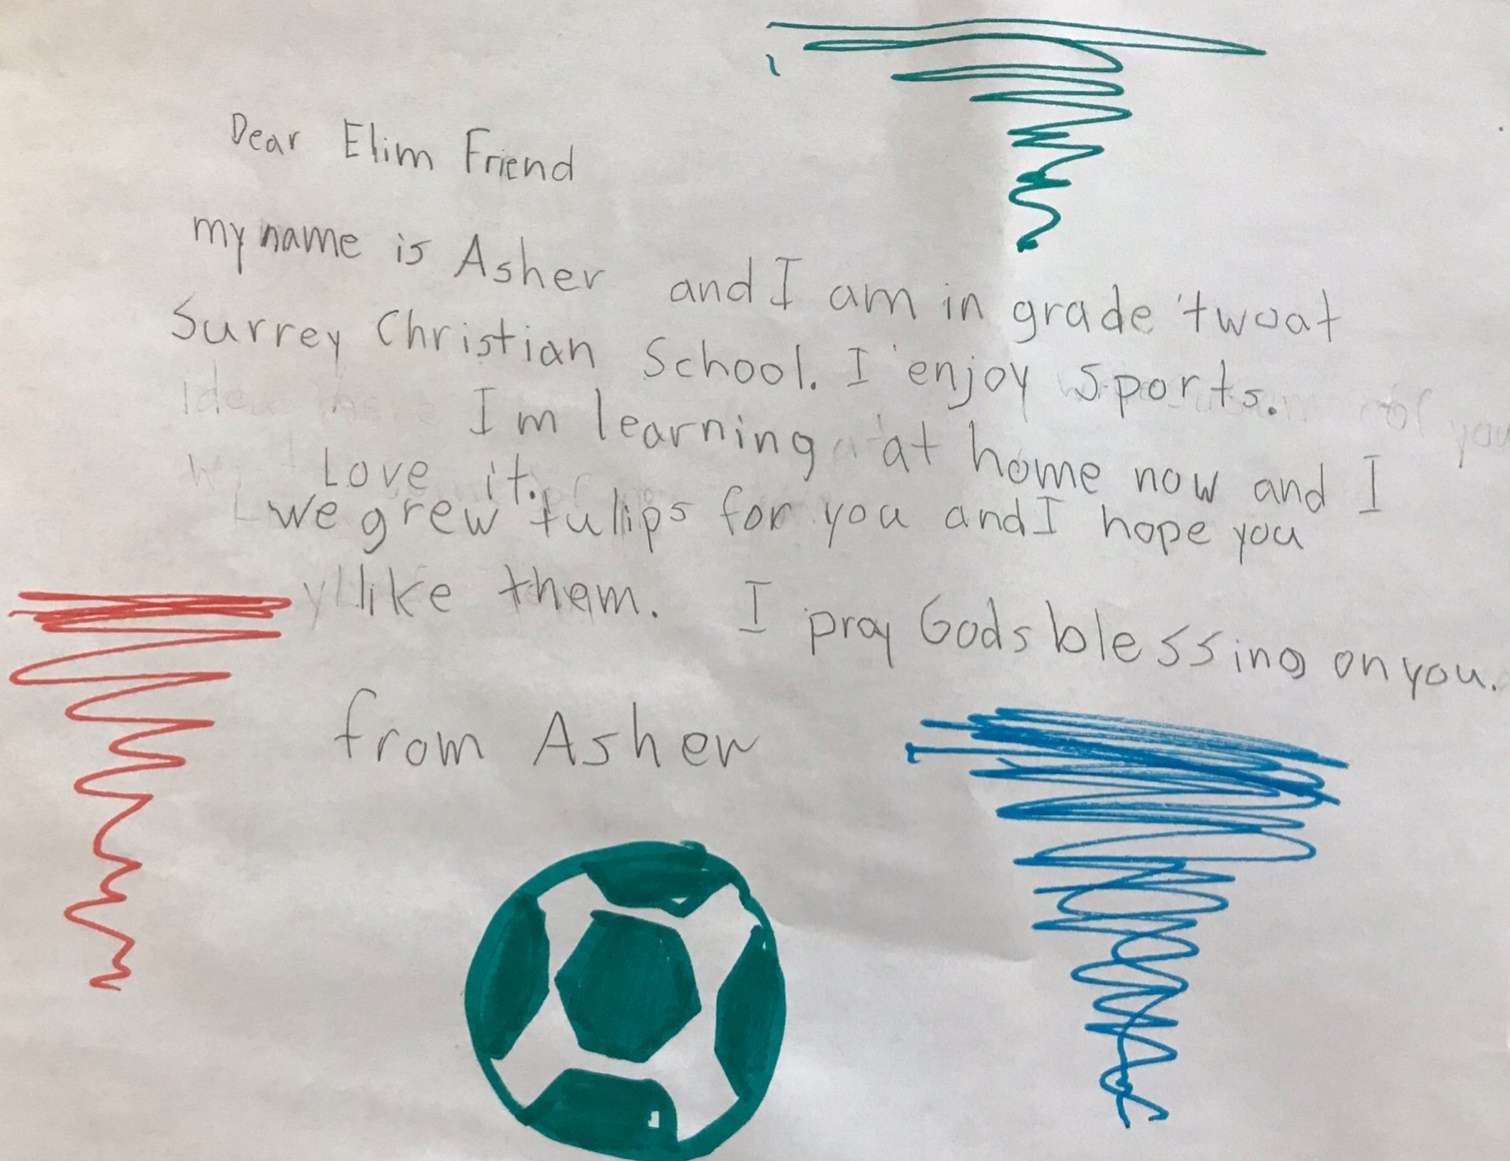 Dear Elim Friend
my name is Asher and I am in grade twoat
Surrey Christian School. I enjoy sports.
Im learning at home now and I
Love it.
we grew tulips for you and I hope you
like them. I pray Gods blessing on you.
from Asher